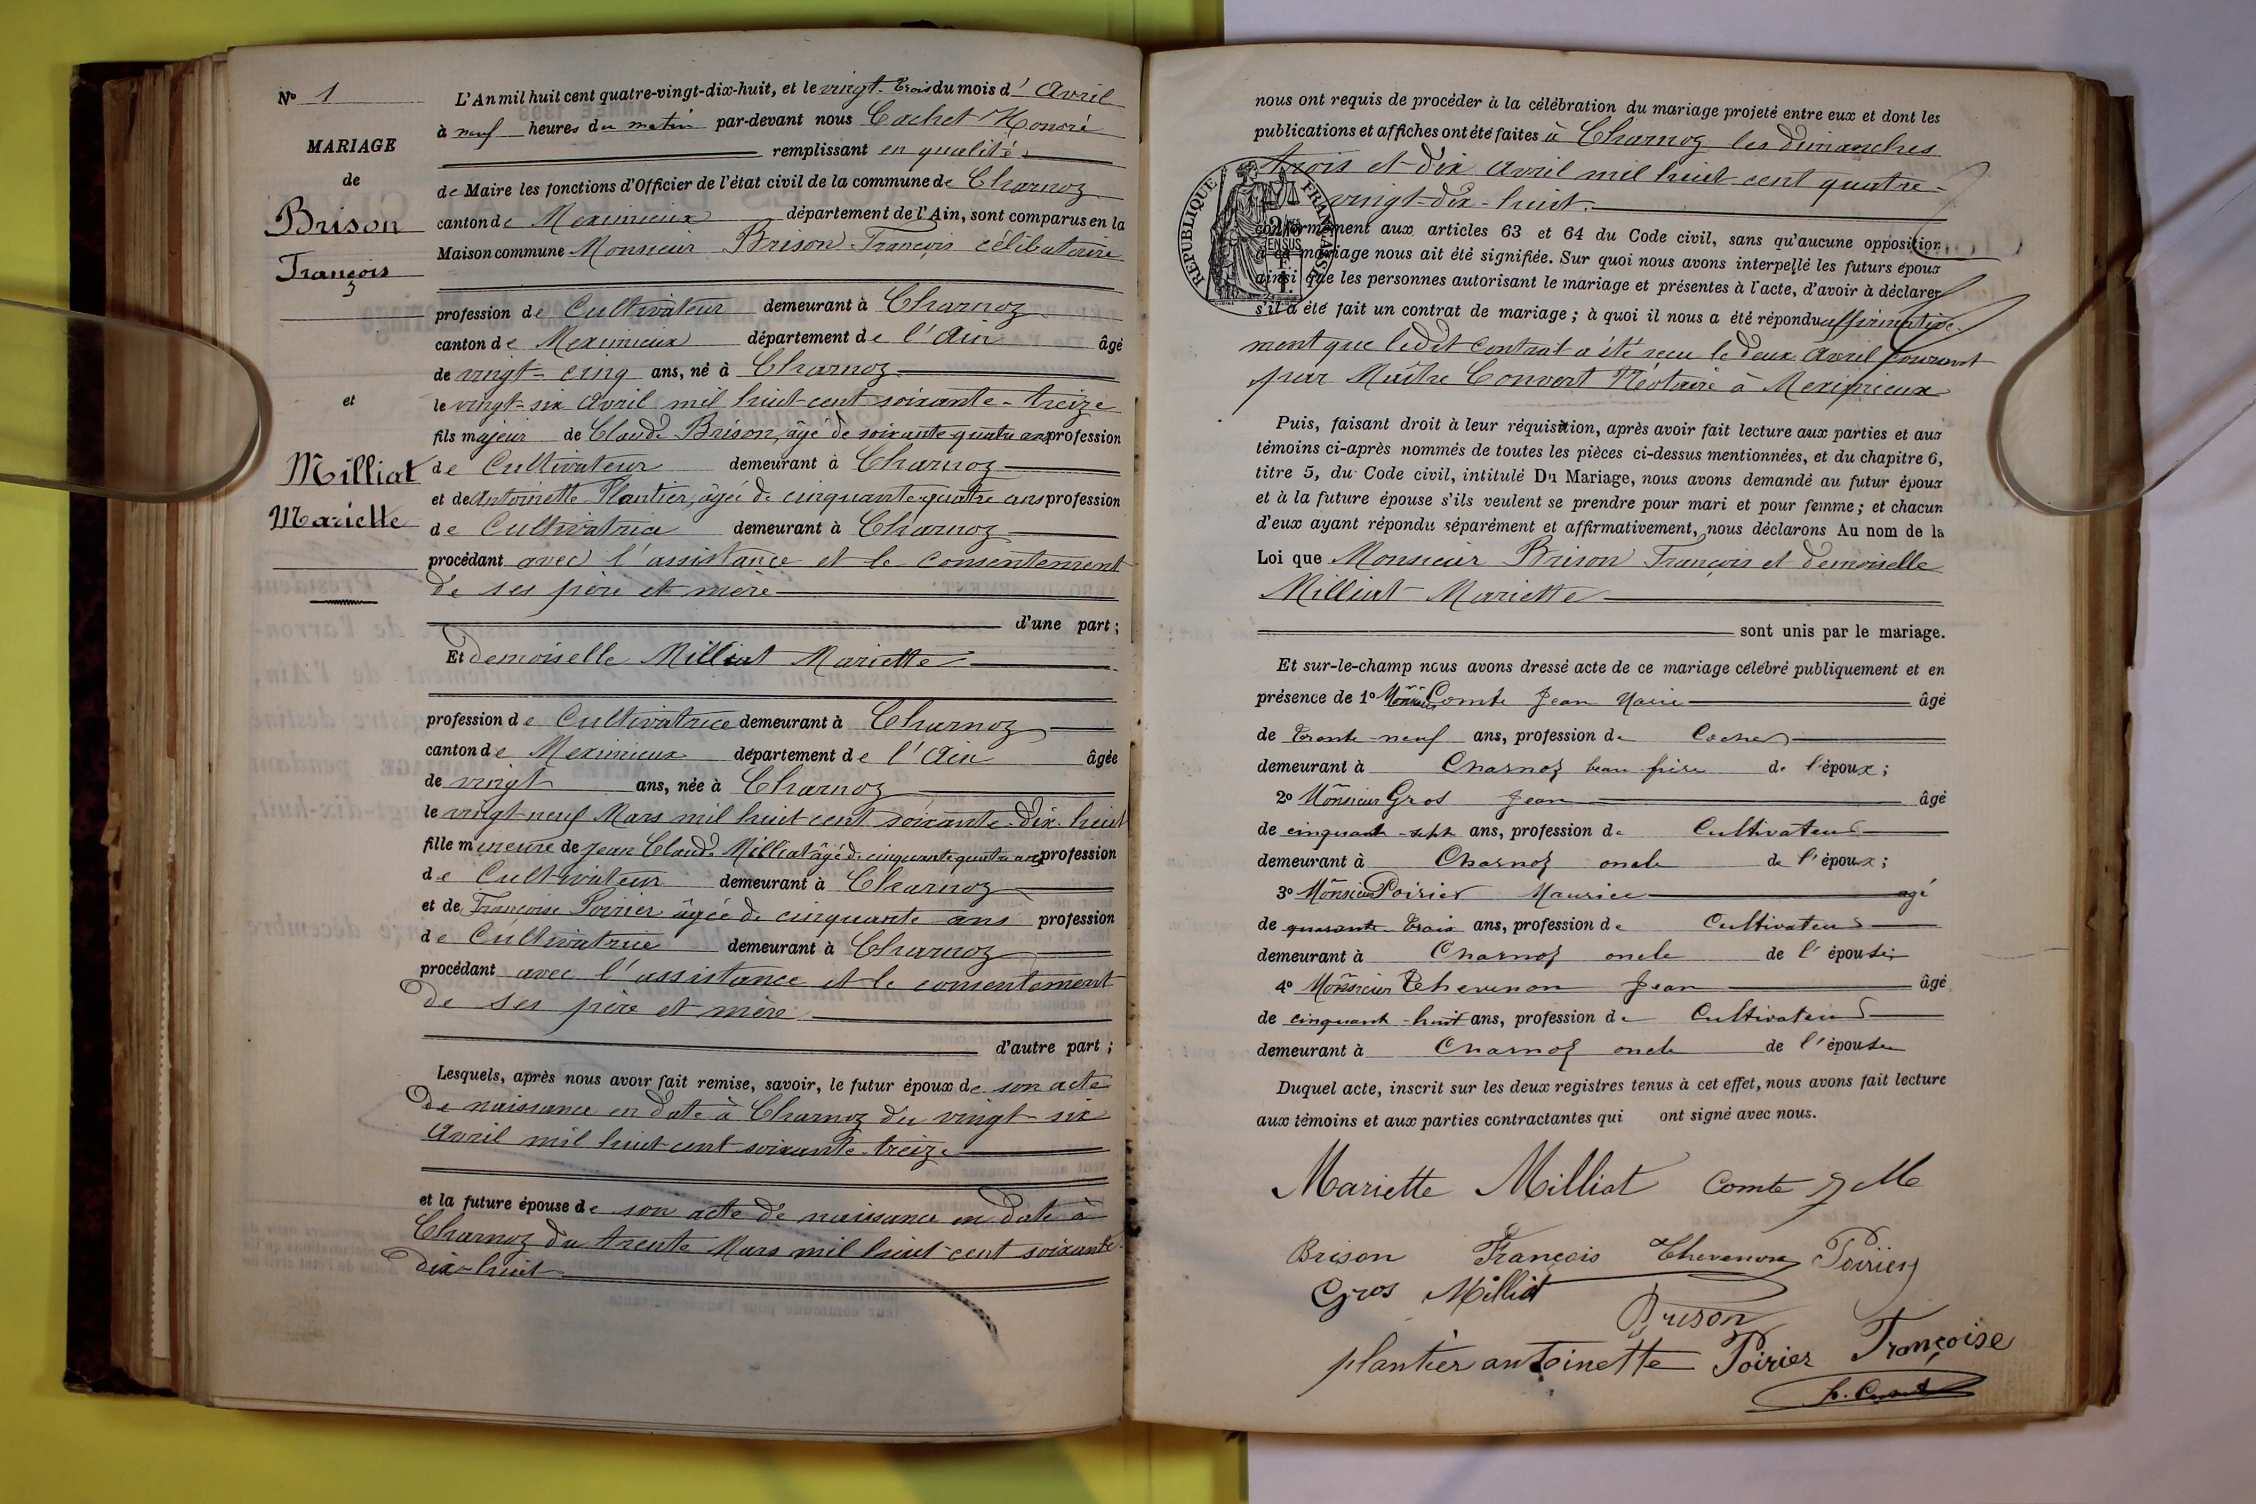 N° 1
MARIAGE
de
Brison
François
et
Milliat
Mariette
L'An mil huit cent quatre-vingt-dix-huit, et le vingt-trois du mois d'Avril
à neuf heures du matin par-devant nous Cachet Honoré
remplissant en qualité
de Maire les fonctions d'Officier de l'état civil de la commune de Charnoz
canton de Meximieux département de l'Ain, sont comparus en la
Maison commune Monsieur Brison François célibataire
profession de Cultivateur demeurant à Charnoz
canton de Meximieux département de l'Ain âgé
de vingt-cinq ans, né à Charnoz
le vingt-six Avril mil huit cent soixante-treize
fils majeur de Claude Brison, âgé de soixante quatre ans profession
de Cultivateur demeurant à Charnoz
et de Antoinette Plantier, âgée de cinquante-quatre ans profession
de Cultivatrice demeurant à Charnoz
procédant avec l'assistance et le consentement
de ses père et mère
d'une part;
Et demoiselle Milliat Mariette
profession de Cultivatrice demeurant à Charnoz
canton de Meximieux département de l'Ain âgée
de vingt ans, née à Charnoz
le vingt-neuf Mars mil huit cent soixante-dix-huit
fille mineure de Jean Claude Milliat âgé de cinquante quatre ans profession
de Cultivateur demeurant à Charnoz
et de Françoise Poirier âgée de cinquante ans profession
de Cultivatrice demeurant à Charnoz
procédant avec l'assistance et le consentement
de ses père et mère
d'autre part;
Lesquels, après nous avoir fait remise, savoir, le futur époux de son acte
de naissance en date à Charnoz du vingt-six
Avril mil huit cent soixante-treize
et la future épouse de son acte de naissance en date à
Charnoz du trente Mars mil huit cent soixante-
dix-huit
nous ont requis de procéder à la célébration du mariage projeté entre eux et dont les
publications et affiches ont été faites à Charnoz les dimanches
trois et dix Avril mil huit cent quatre-
vingt-dix-huit.
RÉPUBLIQUE FRANÇAISE
conformément aux articles 63 et 64 du Code civil, sans qu'aucune opposition
à ce mariage nous ait été signifiée. Sur quoi nous avons interpellé les futurs époux
ainsi que les personnes autorisant le mariage et présentes à l'acte, d'avoir à déclarer
s'il a été fait un contrat de mariage; à quoi il nous a été répondu affirmative-
ment que ledit contrat a été reçu le deux Avril courant
par Maître Convert Notaire à Meximieux
Puis, faisant droit à leur réquisition, après avoir fait lecture aux parties et aux
témoins ci-après nommés de toutes les pièces ci-dessus mentionnées, et du chapitre 6,
titre 5, du Code civil, intitulé Du Mariage, nous avons demandé au futur époux
et à la future épouse s'ils veulent se prendre pour mari et pour femme; et chacun
d'eux ayant répondu séparément et affirmativement, nous déclarons Au nom de la
Loi que Monsieur Brison François et demoiselle
Milliat Mariette
sont unis par le mariage.
Et sur-le-champ nous avons dressé acte de ce mariage célébré publiquement et en
présence de 1° Monsieur Comte Jean Marie âgé
de trente-neuf ans, profession de Cocher
demeurant à Charnoz beau frère de l'époux;
2° Monsieur Gros Jean âgé
de cinquante-sept ans, profession de Cultivateur
demeurant à Charnoz oncle de l'époux;
3° Monsieur Poirier Maurice agé
de quarante trois ans, profession de Cultivateur
demeurant à Charnoz oncle de l'épouse;
4° Monsieur Thevenon Jean âgé
de cinquante-huit ans, profession de Cultivateur
demeurant à Charnoz oncle de l'épouse
Duquel acte, inscrit sur les deux registres tenus à cet effet, nous avons fait lecture
aux témoins et aux parties contractantes qui ont signé avec nous.
Mariette Milliat Comte J M
Brison François Thevenon Poirier
Gros Milliat
Brison
plantier antoinette Poirier Françoise